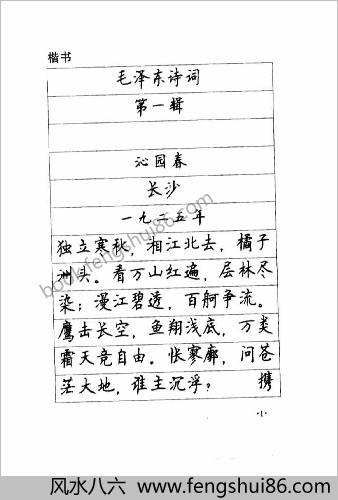 楷书
毛泽东诗词
第一辑
沁园春
长沙
一九二五年
独立寒秋，湘江北去，橘子
洲头。看万山红遍，层林尽
染；漫江碧透，百舸争流。
鹰击长空，鱼翔浅底，万类
霜天竞自由。怅寥廓，问苍
茫大地，谁主沉浮？ 携
·1·
book.fengshui86.com
风水八六 www.fengshui86.com